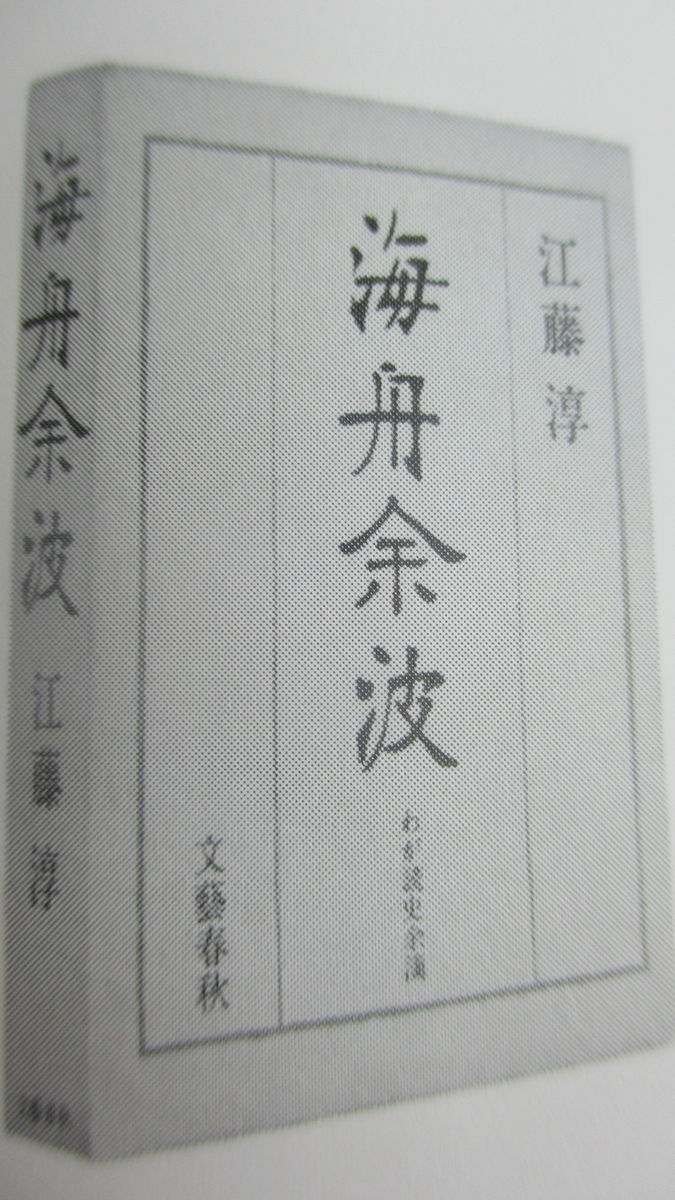 江藤淳
海舟余波
わが読史余滴
文藝春秋
海舟余波 江藤淳